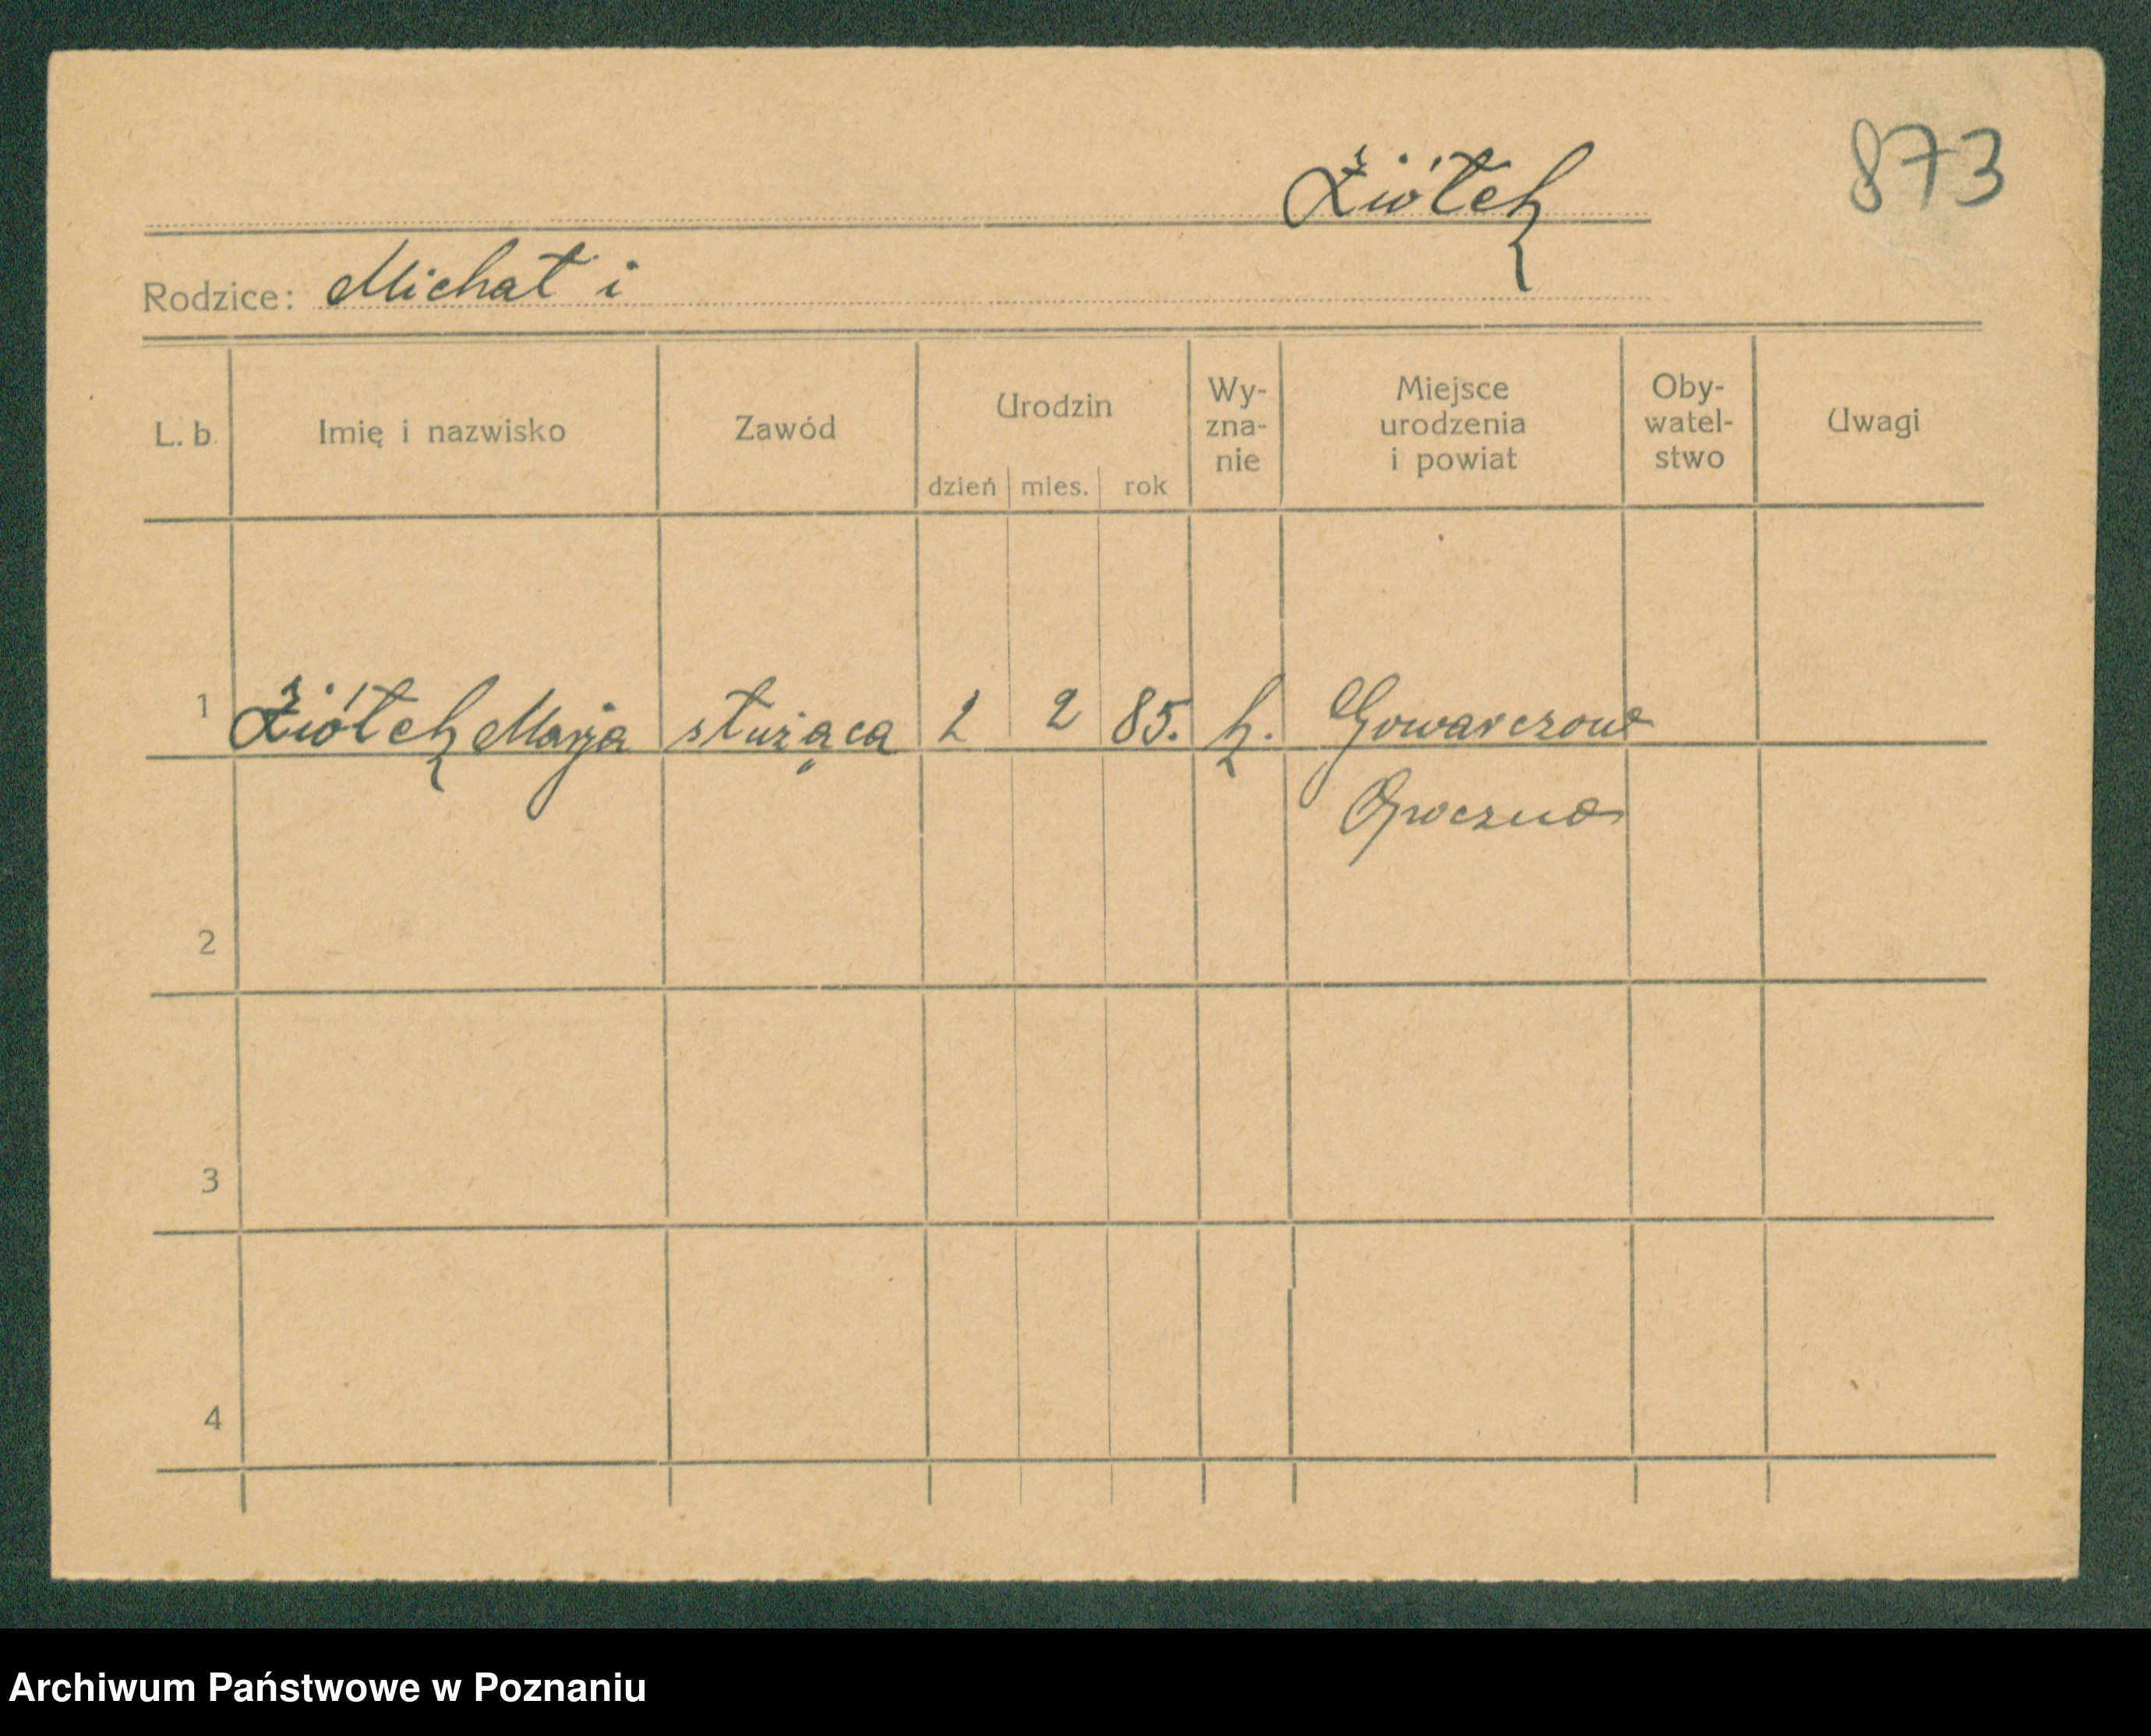 873
Żiółek
Rodzice: Michał i
L. b. Imię i nazwisko Zawód Urodzin dzień mies. rok Wy-zna-nie Miejsce urodzenia i powiat Oby-watel-stwo Uwagi
1 Żiółek Marja służąca 2 2 85. k. Gowarczow
Opoczno
2
3
4
Archiwum Państwowe w Poznaniu